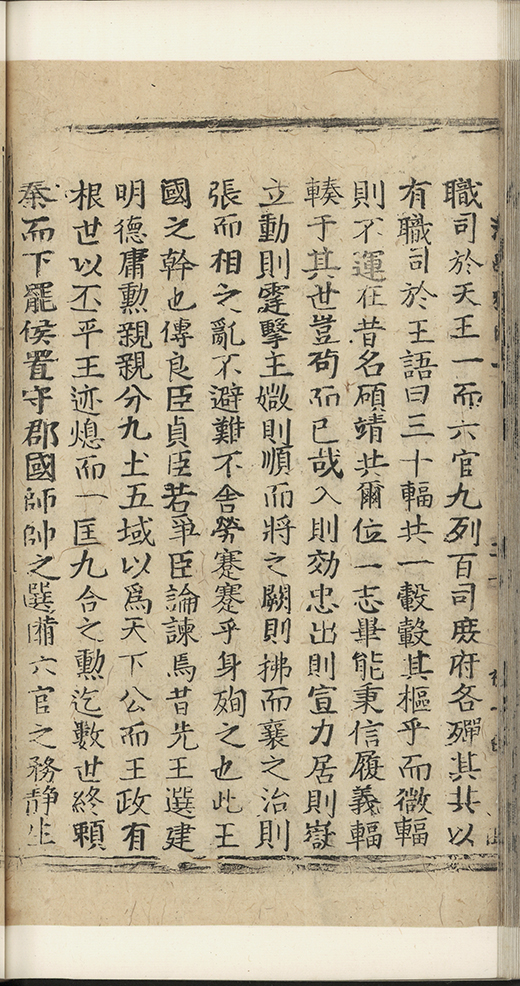 職司於天王一而六官九列百司庶府各殫其共以
有職司於王語曰三十輻共一轂轂其樞乎而微輻
則不運在昔名碩靖共爾位一志畢能秉信履義輻
輳于其世豈苟而已哉入則効忠出則宣力居則嶽
立動則霆擊主媺則順而將之闕則拂而襄之治則
張而相之亂不避難不舍勞蹇蹇乎身殉之也此王
國之幹也傳良臣貞臣若爭臣論諫焉昔先王選建
明德庸勲親親分九土五域以爲天下公而王政有
根世以丕平王迹熄而一匡九合之勲迄數世終頼
秦而下罷侯置守郡國師帥之選猶六官之務静生